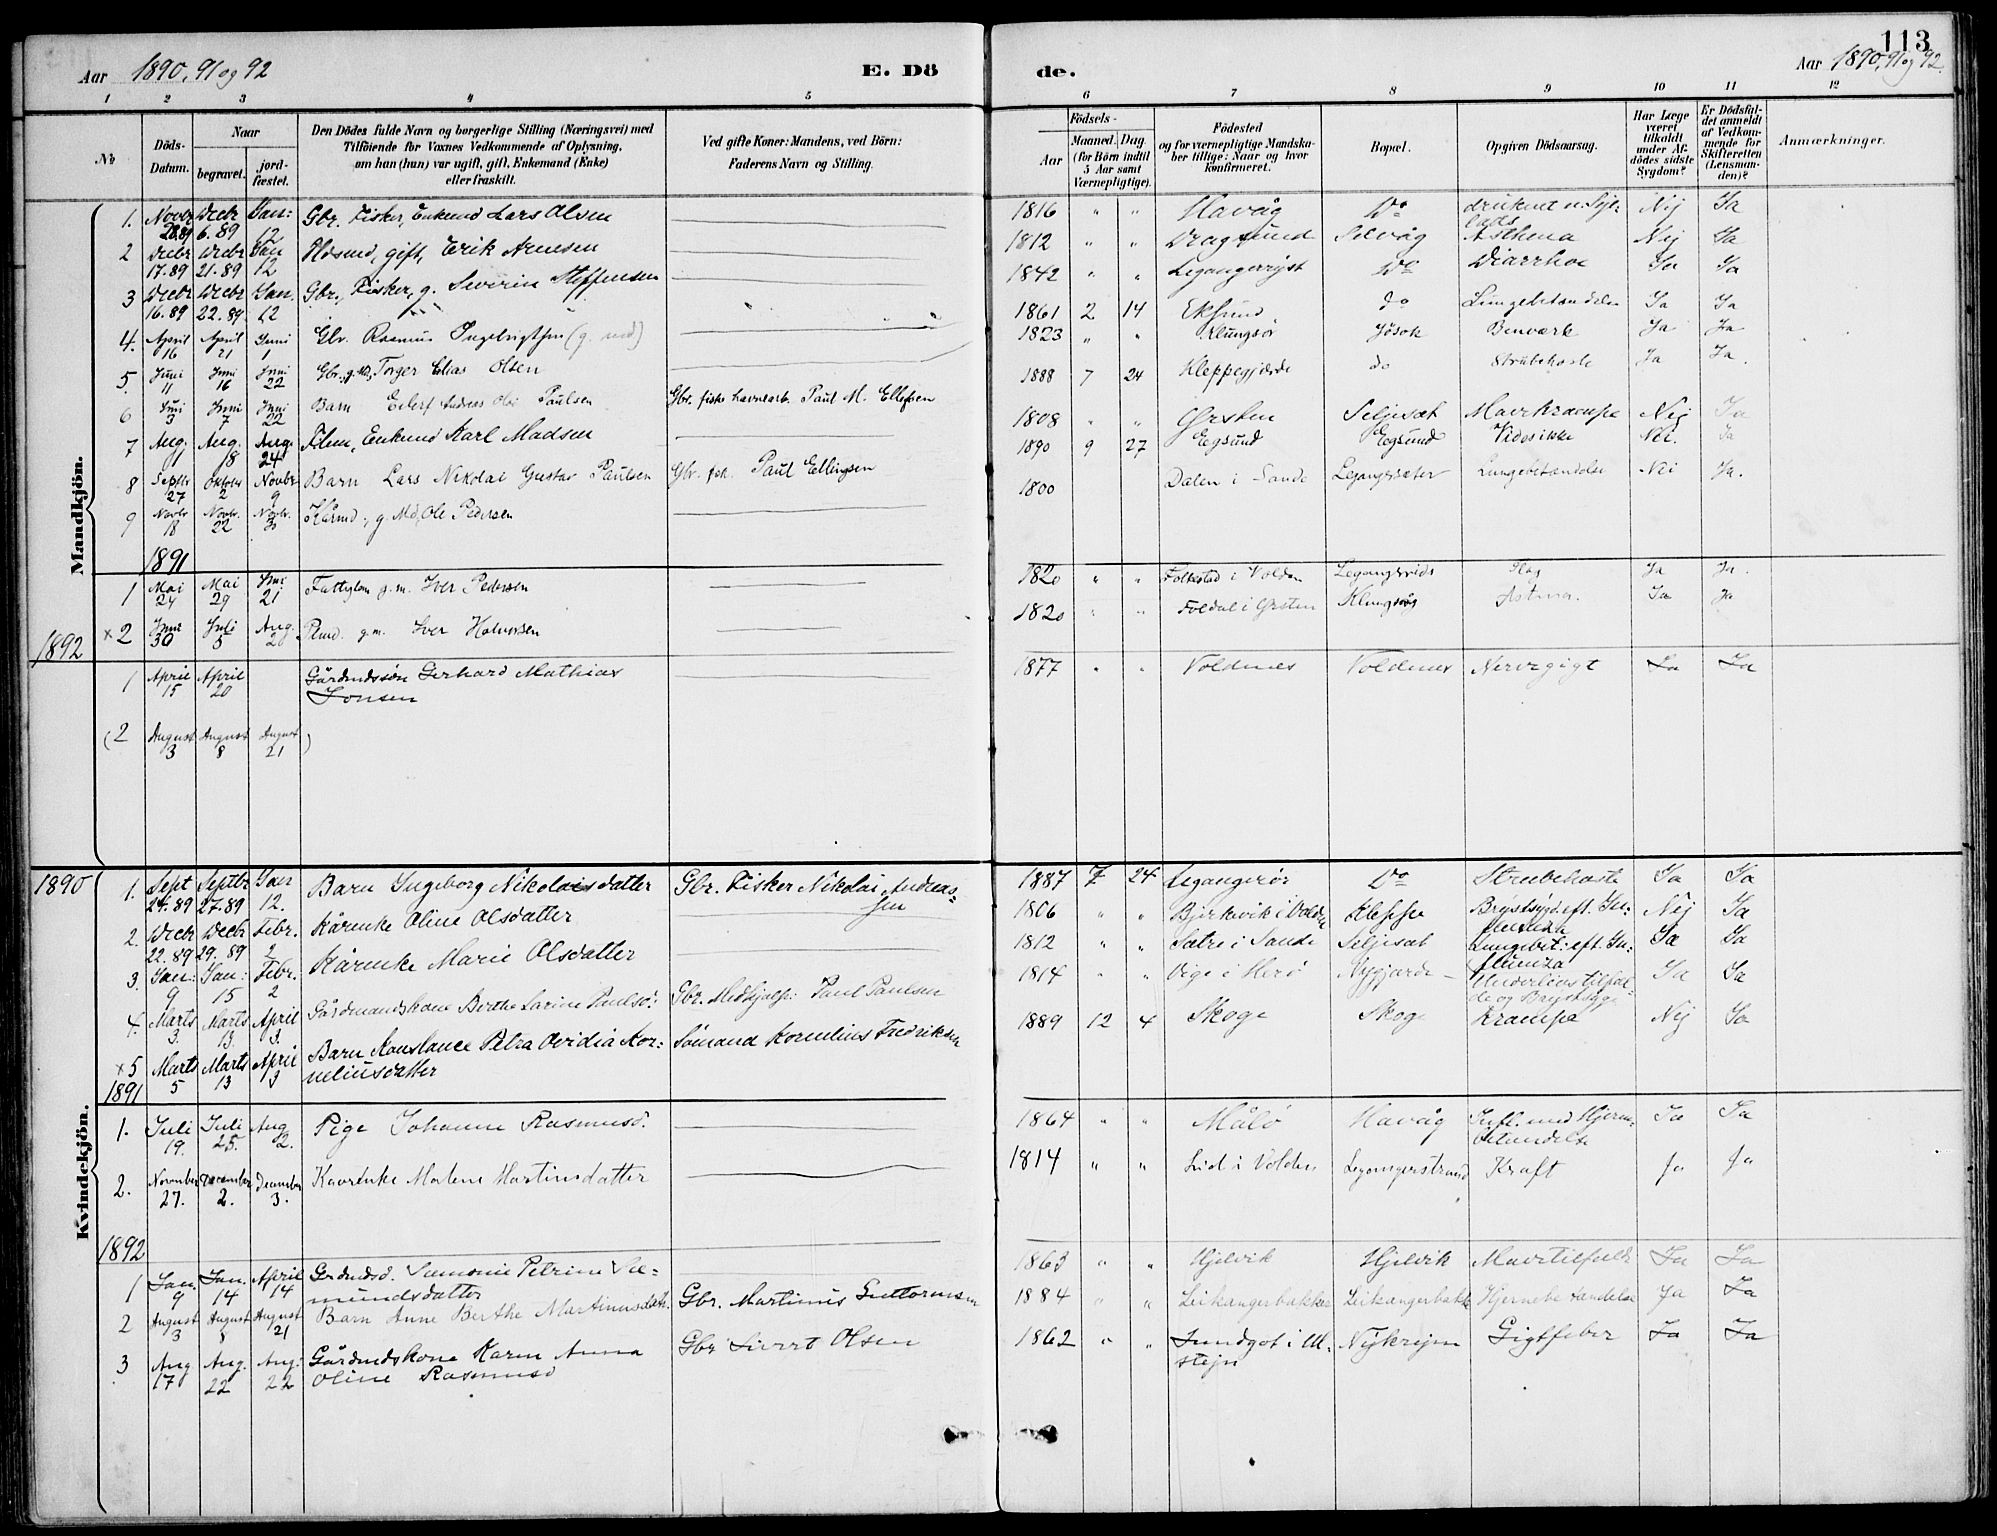 113
Aar 1890, 91 og 92
E. Dö
de.
Aar 1890, 91 og 92.
1 2 3 4 5 6 7 8 9 10 11 12
No
Döds-Datum.
Naar
begravet.
jord-fæstet.
Den Dödes fulde Navn og borgerlige Stilling (Næringsvei) med
Tilföiende for Voxnes Vedkommende af Oplysning,
om han (hun) var ugift, gift, Enkemand (Enke)
eller fraskilt.
Ved gifte Koner: Mandens, ved Börn:
Faderens Navn og Stilling.
Födsels-
Aar
Maaned. Dag.
(for Börn indtil
5 Aar samt
Værnepligtige).
Födested
og for værnepligtige Mandska-
ber tillige: Naar og hvor
konfirmeret.
Bopæl.
Opgiven Dödsaarsag.
Har Læge
været
tilkaldt
under Af-
dödes sidste
Sygdom?
Er Dödsfal-
det anmeldt
af Vedkom-
mende for
Skifteretten
(Lensman-
den)?
Anmærkninger.
Mandkjön.
1. Novbr 28.89 Decbr 6.89 Jan: 12 Gbr. Fisker, Enkemd Lars Olsen 1816 " " Havåg Do druknet Nej Ja
2 Decbr 17.89 Decbr 21.89 Jan 12 Husmd, gift, Erik Arnesen 1812 " " Dragsund Selvåg Asthma Nej Ja
3 Decbr 16.89 Decbr 22.89. Jan. 12 Gbr., Fisker, g. Severin Steffensen 1842 " " Do Diarrhoe Ja Ja
4. April 16 April 21 Juni 1 Gbr. Rasmus Ingebrigtsen 1861 2 14 Eksund do Lungebetændelse Ja Ja
5 Juni 11 Juni 16 Juni 22 Gbr., g. M., Torger Elias Olsen 1823 " " Klungsör Jösok Ja Ja
6 Juni 3 Juni 7 Juni 22 Barn Edlef Andreas Paulsen Gbr. fisk. Paul M. Ellefsen 1888 7 24 Kleppegjærde do Strubehoste Ja Ja.
7 Aug. Aug. 8 Aug. 24 Enkemd Karl Madsen 1808 " " Ørsten Seljesæt Mavekrampe Nej Ja
8 Septbr 27 Oktober 2 Novbr 9 Barn Lars Nikolai Gustav Paulsen Gbr. fisk. Paul Ellingsen 1890 9 27 Eegsund Eegsund Vides ikke Nei. Ja
9 Novbr 18 Novbr. 22 Novbr. 30 g. Md, Ole Pedersen 1800 Dalen i Sande Leganger Lungebetændelse Nei Ja.
1891
1 Mai 24 Mai 29 Juni 21 Fattiglem g. m. Iver Pedersen 1820 " " Folkestad i Volden Slag Ja Ja.
x 2 Juni 30 Juli 5 Aug. 20 g. m. Iver Halvorsen 1820 " " Foldal i Ørsten Klungsör Astma. Ja Ja
1892
1 April 15 April 20 Gårdmdssön Gerhard Mathias
Jonsen 1877 " " Voldnes Voldnes Nervegigt Ja Ja
(2 August 3 August 8 August 21 )
Kvindekjön.
1890
1. Sept 24.89 Septbr 27.89 Jan 12. Barn Ingeborg Nikolaisdatter Gbr. Fisker Nikolai Andreas-
sen 1887 7 24 Legangerör Do Strubehoste Ja Ja
2. Decbr 22.89 Decbr 29.89 Febr. 2 Kårenke Oline Olsdatter 1806 " " Bjerkvik i Volden Kleppe Brystsygd. eft. In-
fluenza Nej Ja
3. Jan: 9 Jan: 15 Febr. 2 Kårenke Marie Olsdatter 1812 " " Sætre i Sande Seljesæt Lungebet: eft. In-
fluenza Ja Ja
4. Marts 3. Marts 13. April 3. Gårdmandskone Berthe Larine Paulsd: Gbr. Medhjælp: Paul Paulsen 1814 " " Vige i Herö Nygjærde Underlivstilfæl-
de og Brystsyge Ja Ja
x 5 Marts 5 Marts 13 April 3 Barn Konstance Petra Ovidia Kor-
neliusdatter Sömand Kornelius Fredriksen 1889 12 4 Skoge Skoge Krampe Nej Ja
1891
1. Juli 19. Juli 25. Aug 2. Pige Johanne Rasmusd. 1864 " " Målö Havåg Infl. med Hjerne-
betændelse Ja Ja
2. November 27. December 2. December 3. Kaarenke Malene Martinsdatter 1814 " " Lid i Volden Legangerstrand Kræft Ja Ja
1892
1 Jan. 9 Jan. 14 April 14 Grdmdsd. Semonie Petrine Se-
mundsdatter 1863 " " Hjelvik Hjelvik Mavetilfælde Ja Ja
2 August 3 August 8 August 21 Barn Anne Berthe Martinusdatr. Gbr. Martinus Guttormsen 1884 " " Leikangerbakken Leikangerbakk Hjernebetændelse Ja Ja
3 Aug 17 Aug. 22 Aug: 22 Gårdmdskone Karen Anna
Oline Rasmusd Gbr Sivert Olsen 1862 " " Sundgot i Ul-
stejn Nykrejm Gigtfeber Ja Ja